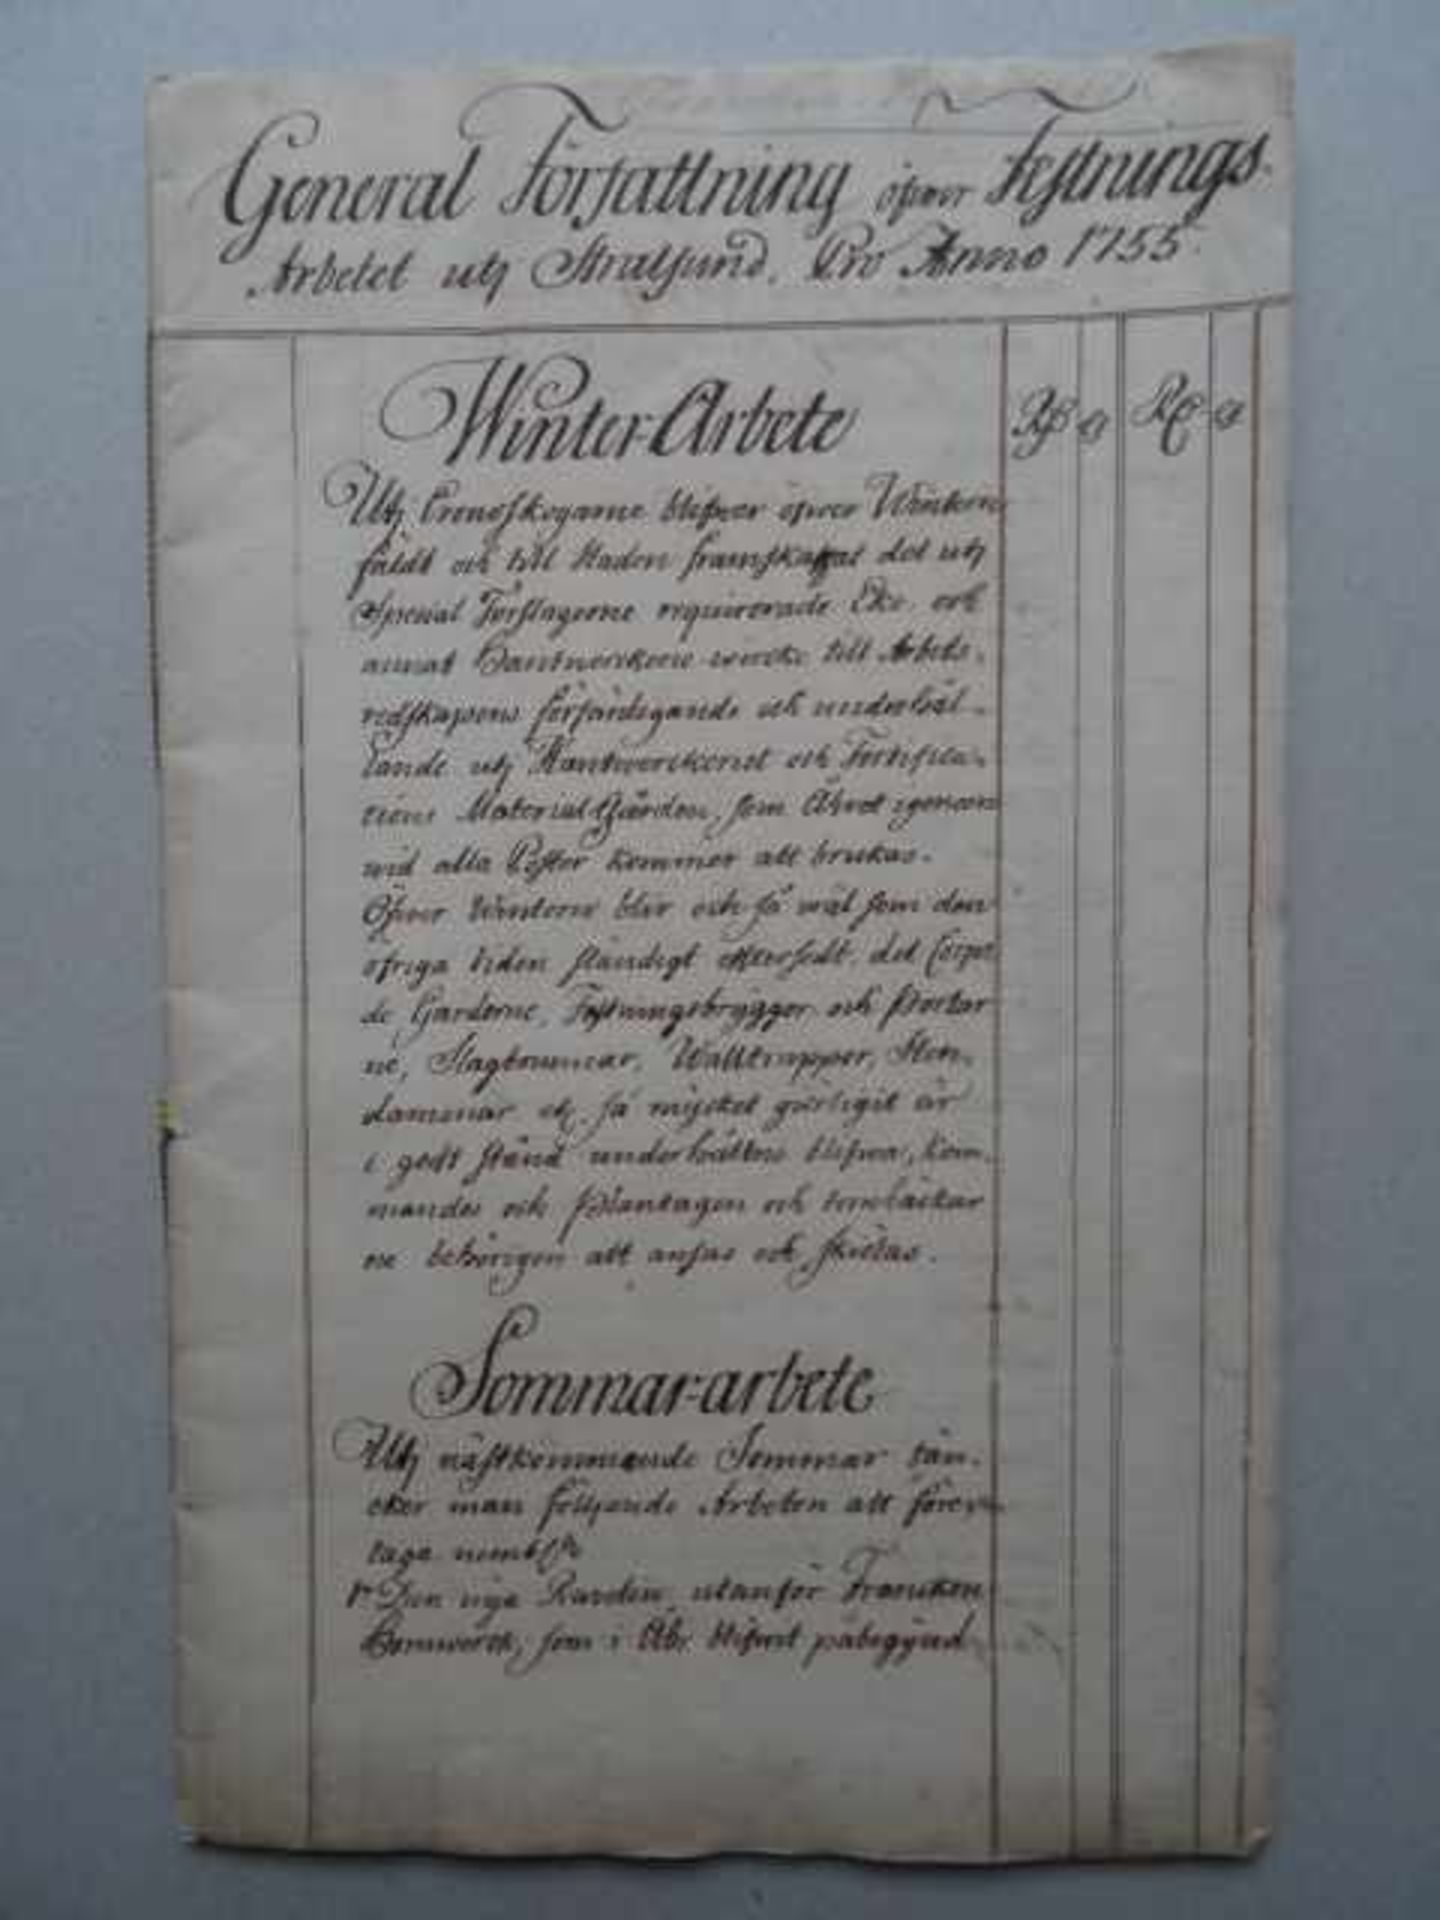 General Författning öfwer Festnings-
Arbetet utj Stralsund. Pro Anno 1755.
Winter-Arbete
Utj Cronoskogarne blifwer öfwer Wintern
fäldt och till Staden framskaffat det utj
Special Förslagerne requirerade Eke och
annat Hantwerckere wircke till Arbets-
redskapens förfärdigande och underhål-
lande utj Hantwerckeriet och Fortifica-
tions Material-Gården, som Åhret igenom
wid alla Poster kommer att brukas.
Öfwer Winteren blir och så wäl som den
öfriga tiden ständigt eftersedt, det Corps
de Garderne, Festningsbryggor och Portar
ne, Slagbommar, Walltrappor, Sten-
dammar etc. så mycket görligit är
i godt stånd underhåltne blifwa, kom-
mandes och Plantagen och
ne behörigen att ansas och skiötas.
Sommar-arbete
Utj nästkommande Sommar tän-
cker man följande Arbeten att före-
taga nembl:
1º Den nya Ravelin utanför Francken
Hornwerck, som i Åhr blifwit påbegynd